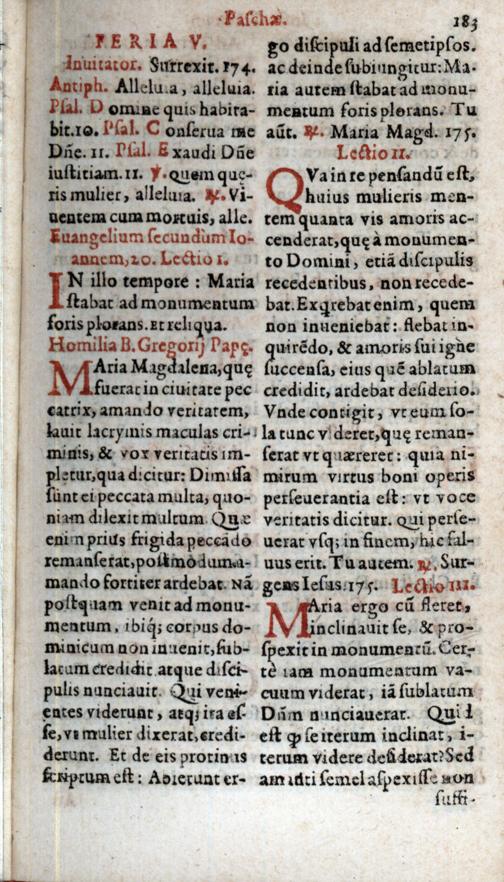 Paschæ. 183
FERIA V.
Inuitator. Surrexit. 174.
Antiph. Alleluia, alleluia.
Psal. Domine quis habita-
bit. 10. Psal. Conserua me
Dñe. 11. Psal. Exaudi Dñe
iustitiam. 11. ℣. Quem quę-
ris mulier, alleluia. ℟. Vi-
uentem cum mortuis, alle.
Euangelium secundùm Io-
annem, 20. Lectio I.
IN illo tempore: Maria
stabat ad monumentum
foris plorans. Et reliqua.
Homilia B. Gregorij Papę.
MAria Magdalena, quę
fuerat in ciuitate pec
catrix, amando veritatem,
lauit lacrymis maculas cri-
minis, & vox veritatis im-
pletur, qua dicitur: Dimissa
sunt ei peccata multa, quo-
niam dilexit multum. Quæ
enim priùs frigida peccãdo
remanserat, postmodum a-
mando fortiter ardebat. Nã
postquam venit ad monu-
mentum, ibiq; corpus do-
minicum non inuenit, sub-
latum credidit atque disci-
pulis nunciauit. Qui veni-
entes viderunt, atq; ita es-
se, vt mulier dixerat, credi-
derunt. Et de eis protinus
scriptum est: Abierunt er-
go discipuli ad semetipsos.
ac deinde subiungitur: Ma-
ria autem stabat ad monu-
mentum foris plorans. Tu
aũt. ℟. Maria Magd. 175.
Lectio II.
QVa in re pensandũ est,
huius mulieris men-
tem quanta vis amoris ac-
cenderat, quę à monumen-
to Domini, etiã discipulis
recedentibus, non recede-
bat. Exqrebat enim, quem
non inueniebat: flebat in-
quirẽdo, & amoris sui igne
succensa, eius quẽ ablatum
credidit, ardebat desiderio.
Vnde contigit, vt eum so-
la tunc videret, quę reman-
serat vt quæreret: quia ni-
mirum virtus boni operis
perseuerantia est: vt voce
veritatis dicitur. Qui perse-
uerat vsq; in finem, hic sal-
uus erit. Tu autem. ℟. Sur-
gens Iesus. 175. Lectio III.
MAria ergo cũ fleret,
inclinauit se, & pro-
spexit in monumentũ. Cer-
tè iam monumentum va-
cuum viderat, iã sublatum
Dñm nunciauerat. Quid
est ꝙ se iterum inclinat, i-
terum videre desiderat? Sed
amanti semel aspexisse non
suffi-